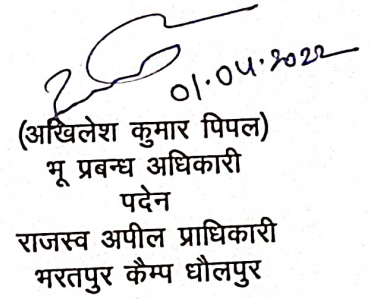 01.04.2022
(अखिलेश कुमार पिपल)
भू प्रबन्ध अधिकारी
पदेन
राजस्व अपील प्राधिकारी
भरतपुर कैम्प धौलपुर